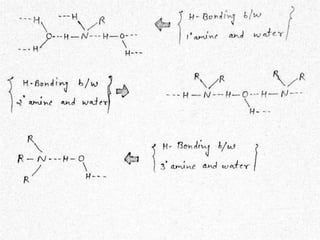 ---H ---H R { H-Bonding b/w
O---H—N---H—O 1° amine and water }
---H H---
{ H-Bonding b/w R R R R
2° amine and water } ---H—N---H—O---H—N---
H---
R
R—N---H—O { H-Bonding b/w
R H--- 3° amine and water }